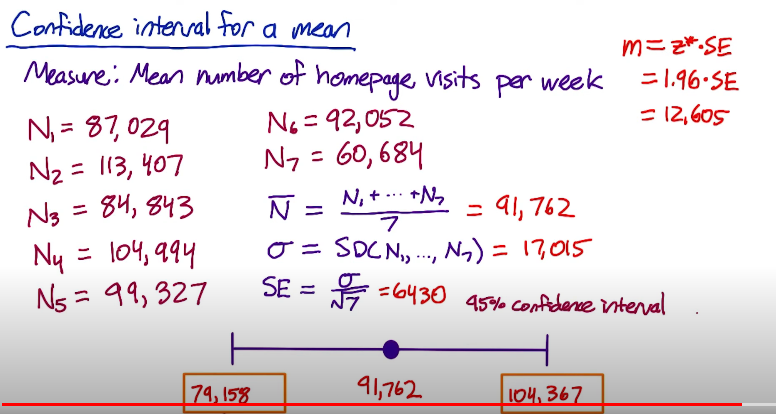 Confidence interval for a mean
Measure: Mean number of homepage visits per week
m = z*·SE
= 1.96·SE
= 12,605
N₁ = 87,029
N₂ = 113,407
N₃ = 84,843
N₄ = 104,994
N₅ = 99,327
N₆ = 92,052
N₇ = 60,684
N̅ = (N₁ + ··· + N₇)/7 = 91,762
σ = SD(N₁, ..., N₇) = 17,015
SE = σ/√7 = 6430
95% confidence interval
79,158
91,762
104,367